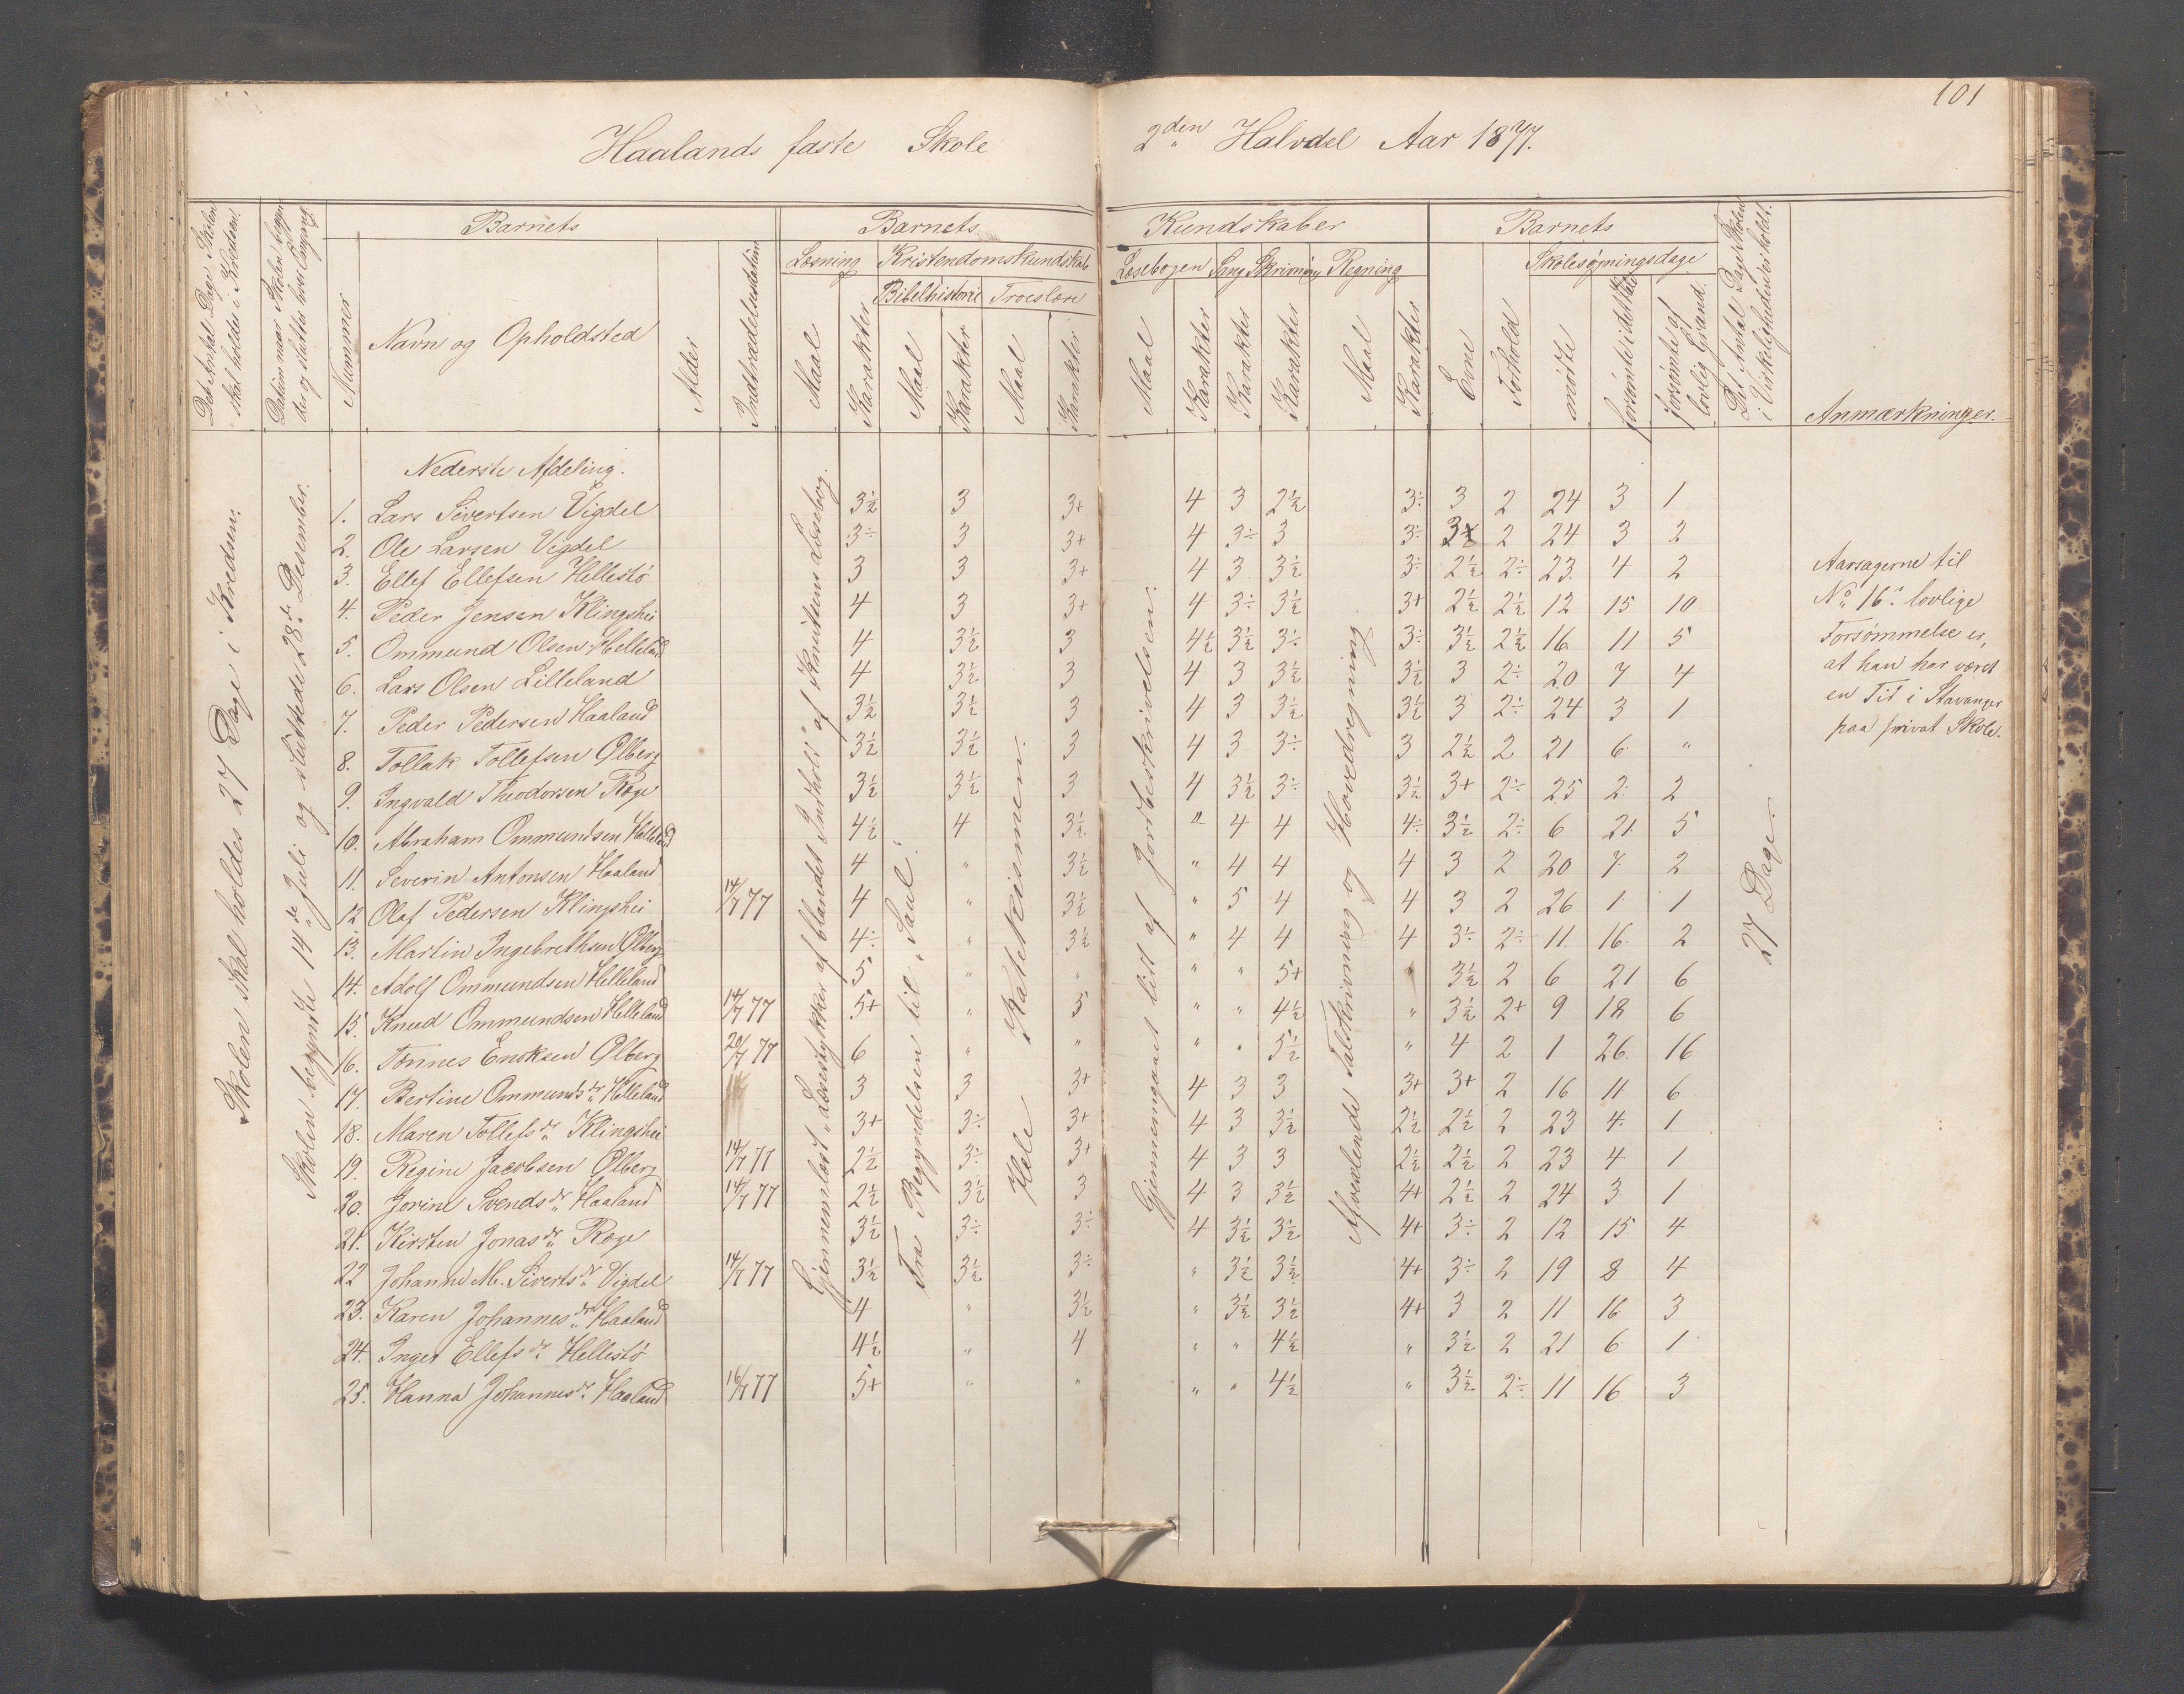 101
Haalands faste Skole 2den Halvdel Aar 1877.
Det Antal Dage Skolen skal holdes i Kredsen.
Datum naar Skolen begynder og slutter hver Omgang.
Nummer
Barnets
Navn og Opholdsted
Alder
Indtrædelsesdatum
Barnets Kundskaber
Læsning
Maal
Karakter
Kristendomskundskab
Bibelhistorie
Maal
Karakter
Troeslære
Maal
Karakter
Læsebogen
Maal
Karakter
Sang
Karakter
Skrivning
Karakter
Regning
Maal
Karakter
Barnets
Evne
Forhold
Skolesøgningsdage
mødte
forsømte i det Hele
forsømte af lovlig Grund.
Det Antal Dage Skolen i Virkeligheden er holdt.
Anmærkninger.
Skolen skal holdes 27 Dage i Kredsen.
Skolen begyndte 14de Juli og sluttede 28de Desember.
Gjennemlæst „Læsestykker af blandet Indhold" af Knutsens Læsebog.
Fra Begyndelsen til „Saul".
Hele Katekismen.
Gjennemgaaet lidt af Jordbeskrivelsen.
Afvexlende Talskrivning og Hovedregning
27 Dage.
Nederste Afdeling.
1. Lars Sivertsen Vigdel 3½ 3 3+ 4 3 2½ 3÷ 3 2 24 3 1
2. Ole Larsen Vigdel 3÷ 3 3+ 4 3÷ 3 3÷ 3+ 2 24 3 2
3. Ellef Ellefsen Hellestö 3 3 3+ 4 3 3½ 3÷ 2½ 2÷ 23 4 2
4. Peder Jensen Klingshei 4 3 3+ 4 3÷ 3½ 3+ 2½ 2½ 12 15 10
5. Ommund Olsen Helleland 4 3½ 3 4½ 3½ 3÷ 3÷ 3½ 2½ 16 11 5
6. Lars Olsen Lilleland 4 3½ 3 4 3 3½ 3½ 3 2÷ 20 7 4
7. Peder Pedersen Haaland 3½ 3½ 3 4 3 3½ 3½ 3 2÷ 24 3 1
8. Tollak Tollefsen Ølberg 3½ 3½ 3 4 3 3÷ 3 2½ 2 21 6 "
9. Ingvald Theodorsen Røge 3½ 3½ 3 4 3½ 3÷ 3½ 3+ 2÷ 25 2 2
10. Abraham Ommundsen Helleland 4½ 4 3½ " 4 4 4÷ 3½ 2÷ 6 21 5
11. Severin Antonsen Haaland 4 " 3½ " 4 4 4 3 2 20 7 2
12. Olaf Pedersen Klingshei 14/7 77 4 " 3½ " 5 4 4 3 2 26 1 1
13. Martin Ingebrethsen Ølberg 4÷ " 3½ " 4 4 4 3÷ 2÷ 11 16 2
14. Adolf Ommundsen Helleland 5 " " " " 5+ " 3½ 2 6 21 6
15. Knud Ommundsen Helleland 14/7 77 5+ " 5 " " 4½ " 3½ 2+ 9 18 6
16. Tönnes Enoksen Ølberg 20/7 77 6 " " " " 5½ " 4 2 1 26 16
17. Bertine Ommundsdr. Helleland 3 3 3+ 4 3 3 3+ 3+ 2 16 11 6
18. Maren Tollefsdr. Klingshei 3+ 3÷ 3+ 4 3 3½ 2½ 2½ 2 23 4 1
19. Regine Jacobsen Ølberg 14/7 77 2½ 3÷ 3+ 4 3 3 2½ 2½ 2 23 4 1
20. Jorine Svendsdr. Haaland 14/7 77 2½ 3½ 3 4 3 3½ 4+ 2½ 2 24 3 1
21. Kirsten Jonasdr. Røge 3½ 3÷ 3÷ 4 3½ 3½ 4+ 3÷ 2 12 15 4
22 Johanne M. Sivertsdr. Vigdel 14/7 77 3½ 3½ 3÷ " 3½ 3½ 4+ 3÷ 2 19 8 4
23. Karen Johannesdr. Haaland 4 " 3½ " 3½ 3½ 4+ 3 2 11 16 3
24. Inger Ellefsdr. Hellestö 4½ " 4 " " 4½ " 3½ 2 21 6 1
25. Hanna Johannesdr. Haaland 16/7 77 5+ " " " " 4½ " 3½ 2÷ 11 16 3
Aarsagerne til
No. 16s lovlige
Forsömmelse er,
at han har været
en Tid i Stavanger
paa privat Skole.